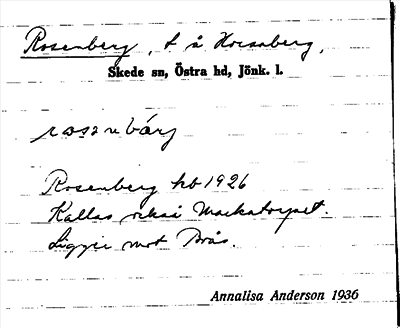 Rosenberg, t. å Horsaberg,
Skede sn, Östra hd, Jönk. l.
rosenbärg
Rosenberg kb 1926
Kallas också Mackatorpet.
Ligger mot Brås.
Annalisa Anderson 1936